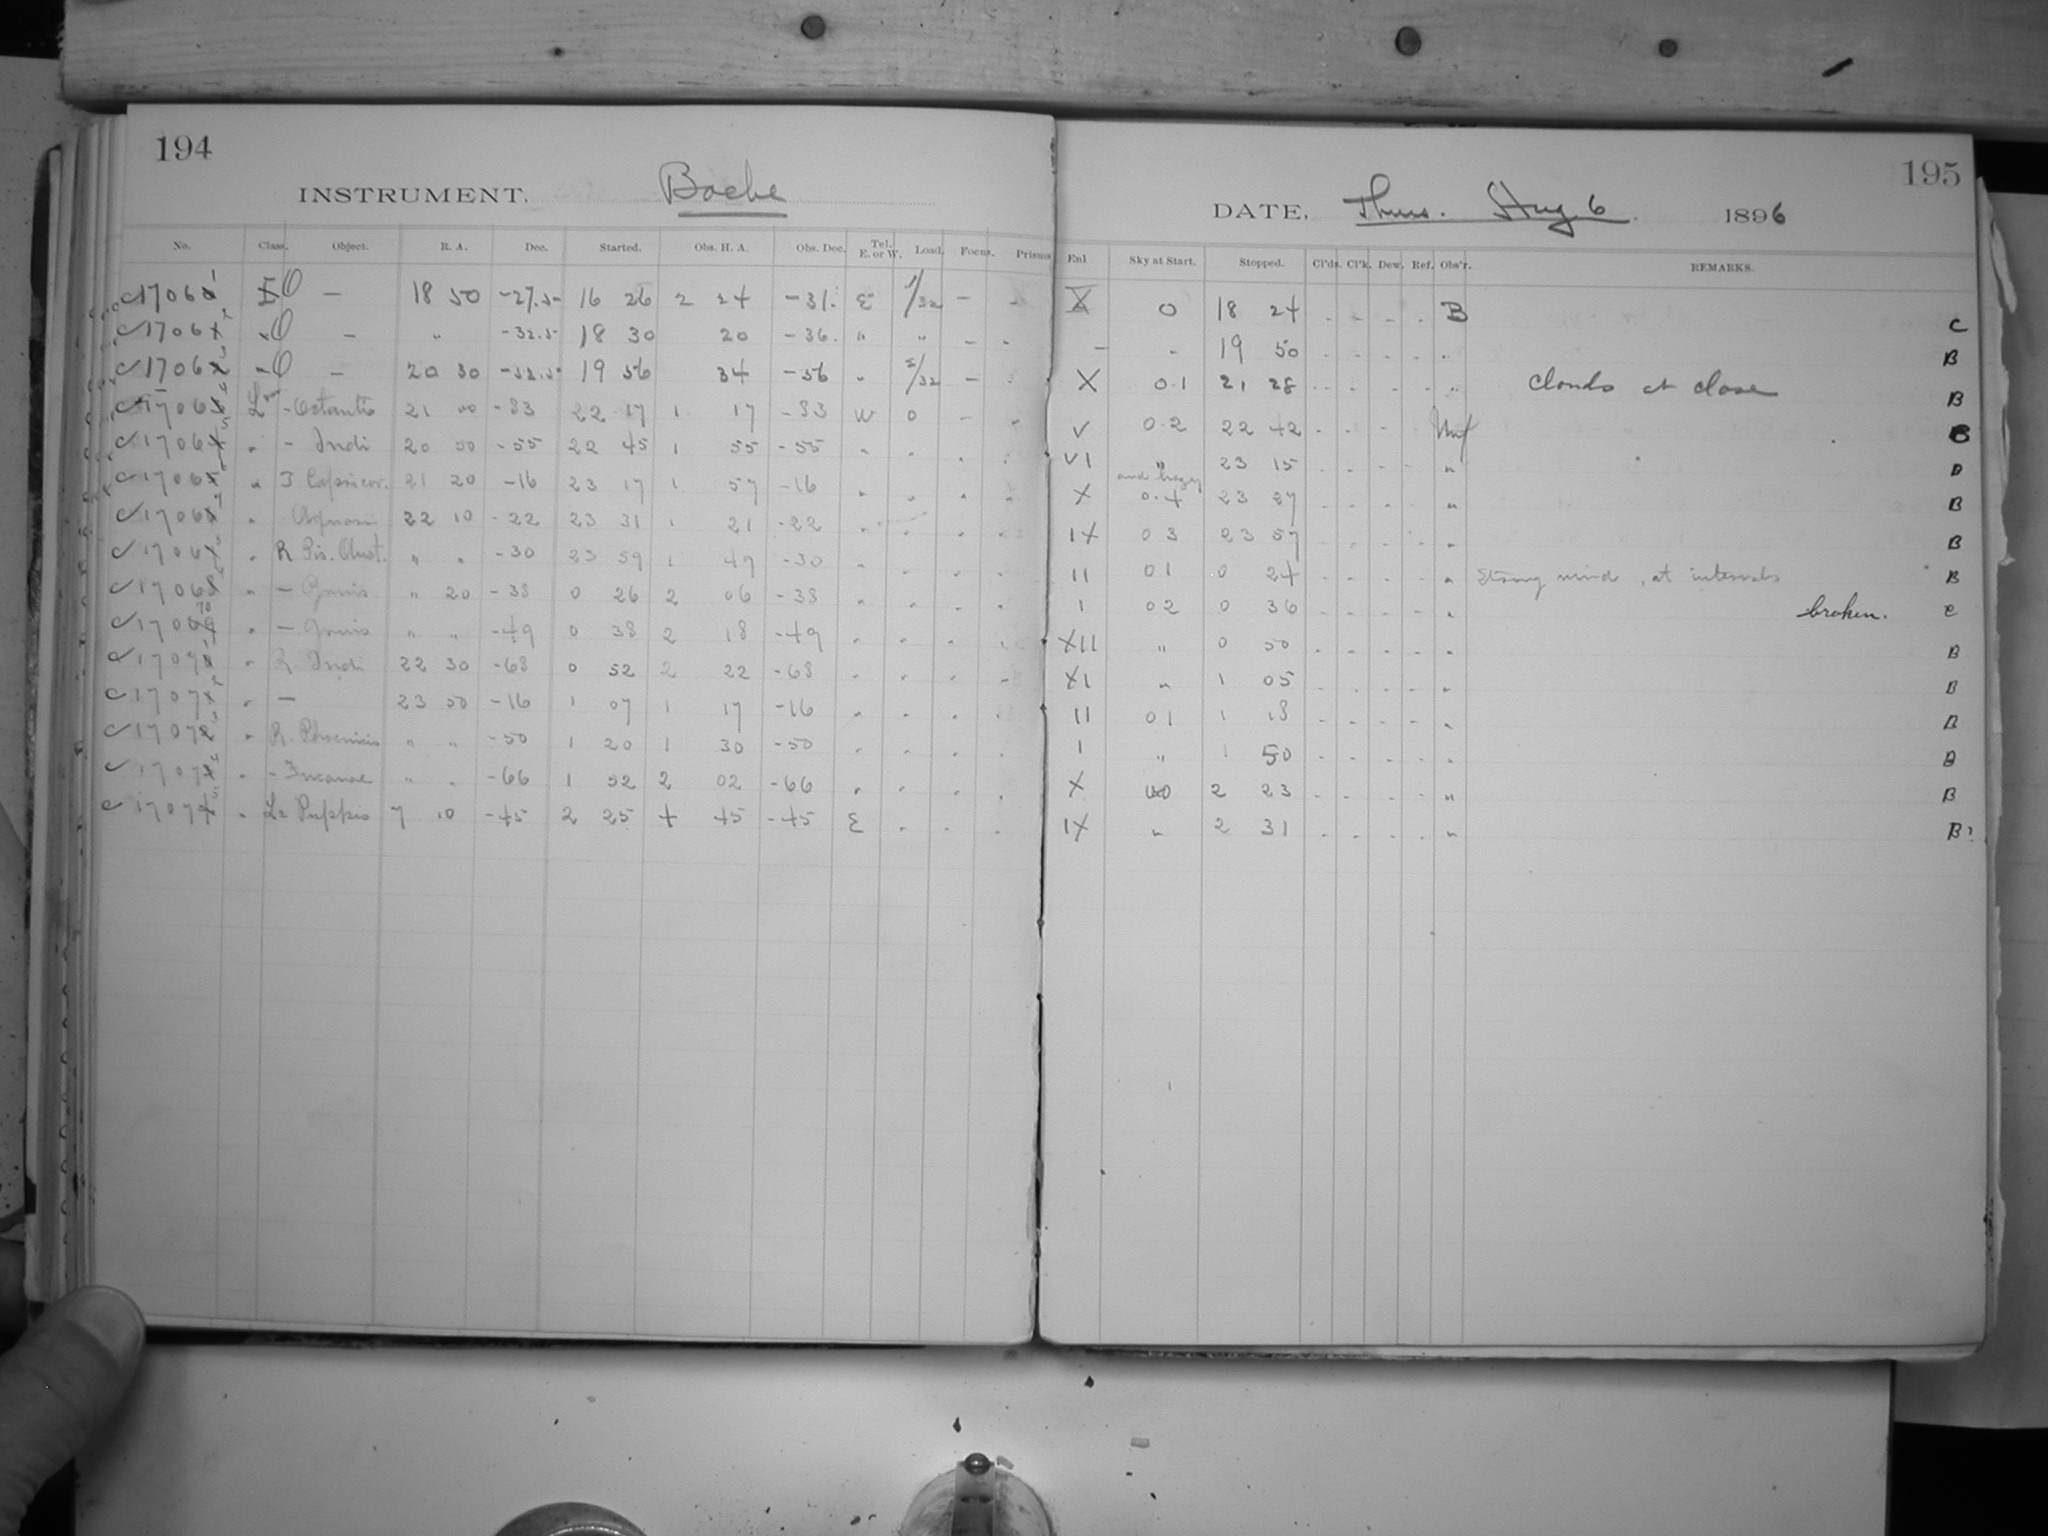 194
INSTRUMENT. Bache
No. Class. Object. R. A. Dec. Started. Obs. H. A. Obs. Dec. Tel. E. or W. Load. Focus. Prisms
1706 — 18 50 -27.5 16 26 2 24 -31. E 1/32 — -
1706 — " -32.5 18 30 20 -36. " " - -
1706 — 20 30 19 56 34 -56 " 2/32 —
1706 - Octantis 21 00 -83 22 17 1 17 -83 W 0 - -
1706 " - Indi 20 50 -55 22 45 1 55 -55 " " " "
1706 " T Capricor. 21 20 -16 23 17 1 57 -16 " " " "
1706 " Aquarii 22 10 -22 23 31 1 21 -22 " " "
1706 " R Pis. Aust. " " -30 23 59 1 49 -30 " " " "
1706 " - Gruis " 20 -38 0 26 2 06 -38 " " " "
170 " - Gruis " " -49 0 38 2 18 -49 " " " "
1707 " R Indi 22 30 -68 0 52 2 22 -68 " " " "
1707 " — 23 50 -16 1 07 1 17 -16 " " " "
1707 " R. Phoenicis " " -50 1 20 1 30 -50 " " " "
1707 " - Tucanae " " -66 1 52 2 02 -66 " " " "
1707 " L2 Puppis 7 10 -45 2 25 4 45 -45 E " " "
195
DATE, Thurs. Aug 6. 1896
Enl Sky at Start. Stopped. Cl'ds. Cl'k. Dew. Ref. Obs'r. REMARKS.
X 0 18 24 - - - - B C
- " 19 50 - - - - " B
X 0.1 21 28 - - - - " Clouds at close B
V 0.2 22 42 - - - B
VI " 23 15 - - - - "
and hazy
X 0.4 23 27 - - - - " B
IX 03 23 57 - - - - " B
II 01 0 24 - - - - " Strong wind, at intervals B
I 02 0 36 - - - - " broken. C
XII " 0 50 - - - - " B
XI " 1 05 - - - - " B
II 01 1 18 - - - - " B
I " 1 50 - - - - " B
X 2 23 - - - - " B
IX " 2 31 - - - - " B?